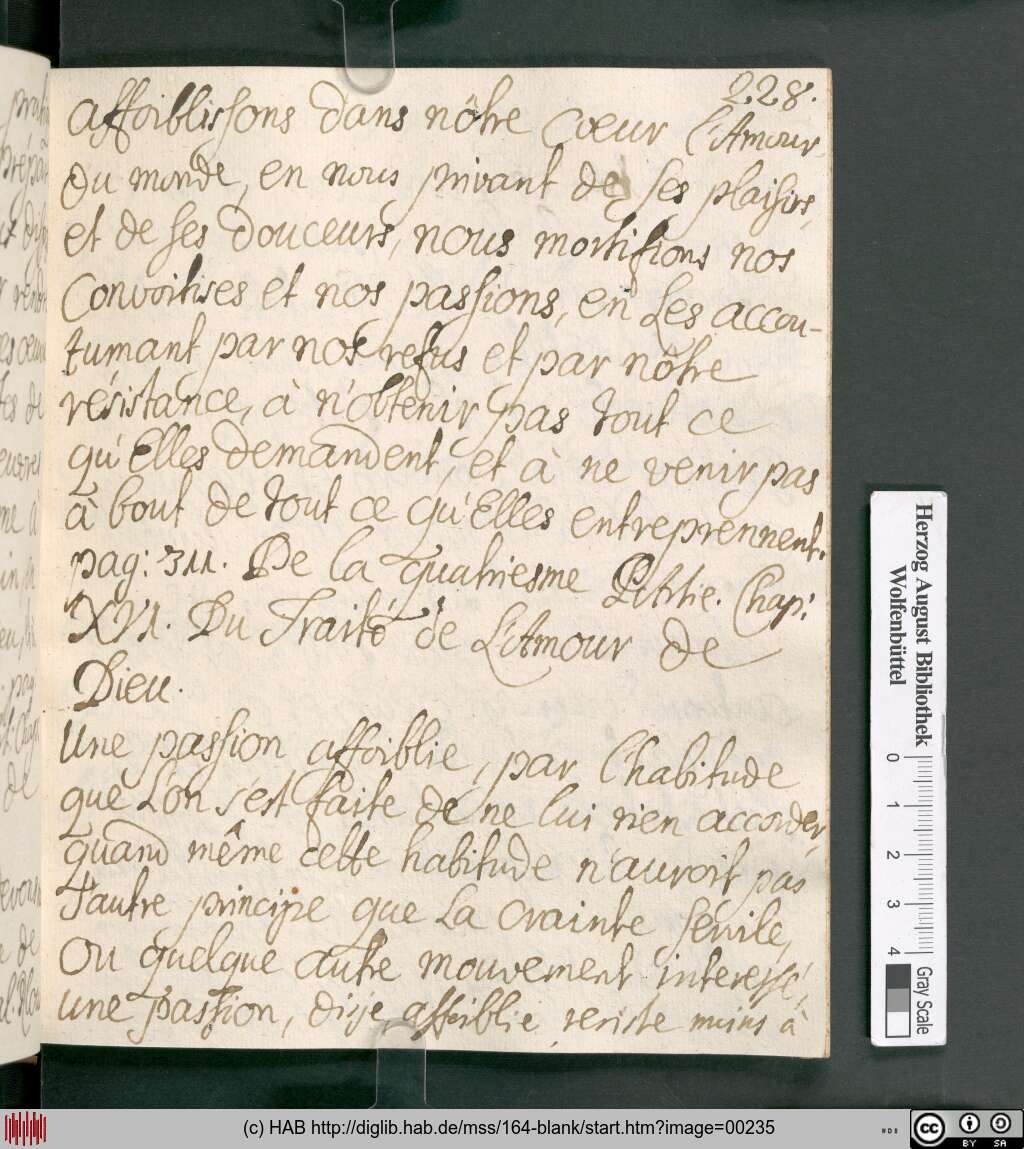 228.
affoiblissons dans nôtre Cœur l'Amour
du monde, en nous privant de ses plaisirs,
et de ses douceurs, nous mortifions nos
Convoitises et nos passions, en Les accou-
tumant par nos refus et par nôtre
résistance, à n'obtenir pas tout ce
qu'Elles demandent, et à ne venir pas
à bout de tout ce qu'Elles entreprennent.
pag: 311. De la quatriesme Partie. Chap:
XVI. Du Traité de L'Amour de
Dieu.
Une passion affoiblie, par l'habitude
que L'on s'est faite de ne lui rien accorder,
quand même cette habitude n'auroit pas
d'autre principe que La crainte sérvile,
Ou quelque autre mouvement interessé,
une passion, disje, affoiblie resiste moins à
Herzog August Bibliothek
Wolfenbüttel
0 1 2 3 4
Gray Scale
(c) HAB http://diglib.hab.de/mss/164-blank/start.htm?image=00235
cc BY SA